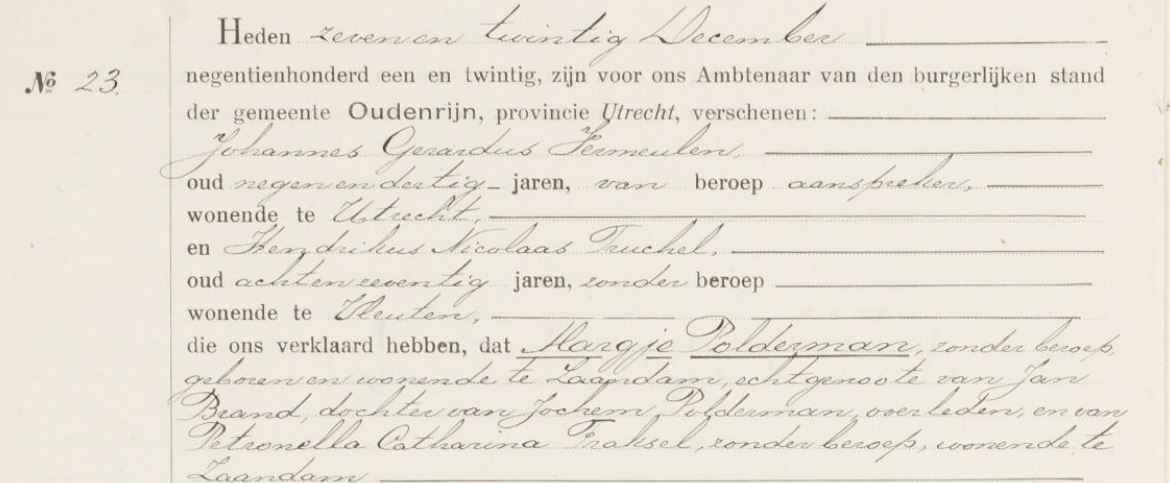 Heden zeven en twintig December
№ 23.
negentienhonderd een en twintig, zijn voor ons Ambtenaar van den burgerlijken stand
der gemeente Oudenrijn, provincie Utrecht, verschenen:
Johannes Gerardus Vermeulen,
oud negen en dertig jaren, van beroep aanspreker,
wonende te Utrecht,
en Hendrikus Nicolaas Truchel,
oud acht en zeventig jaren, zonder beroep
wonende te Vleuten,
die ons verklaard hebben, dat Margje Polderman, zonder beroep,
geboren en wonende te Zaandam, echtgenoote van Jan
Brand, dochter van Jochem Polderman, overleden, en van
Petronella Catharina Traksel, zonder beroep, wonende te
Zaandam